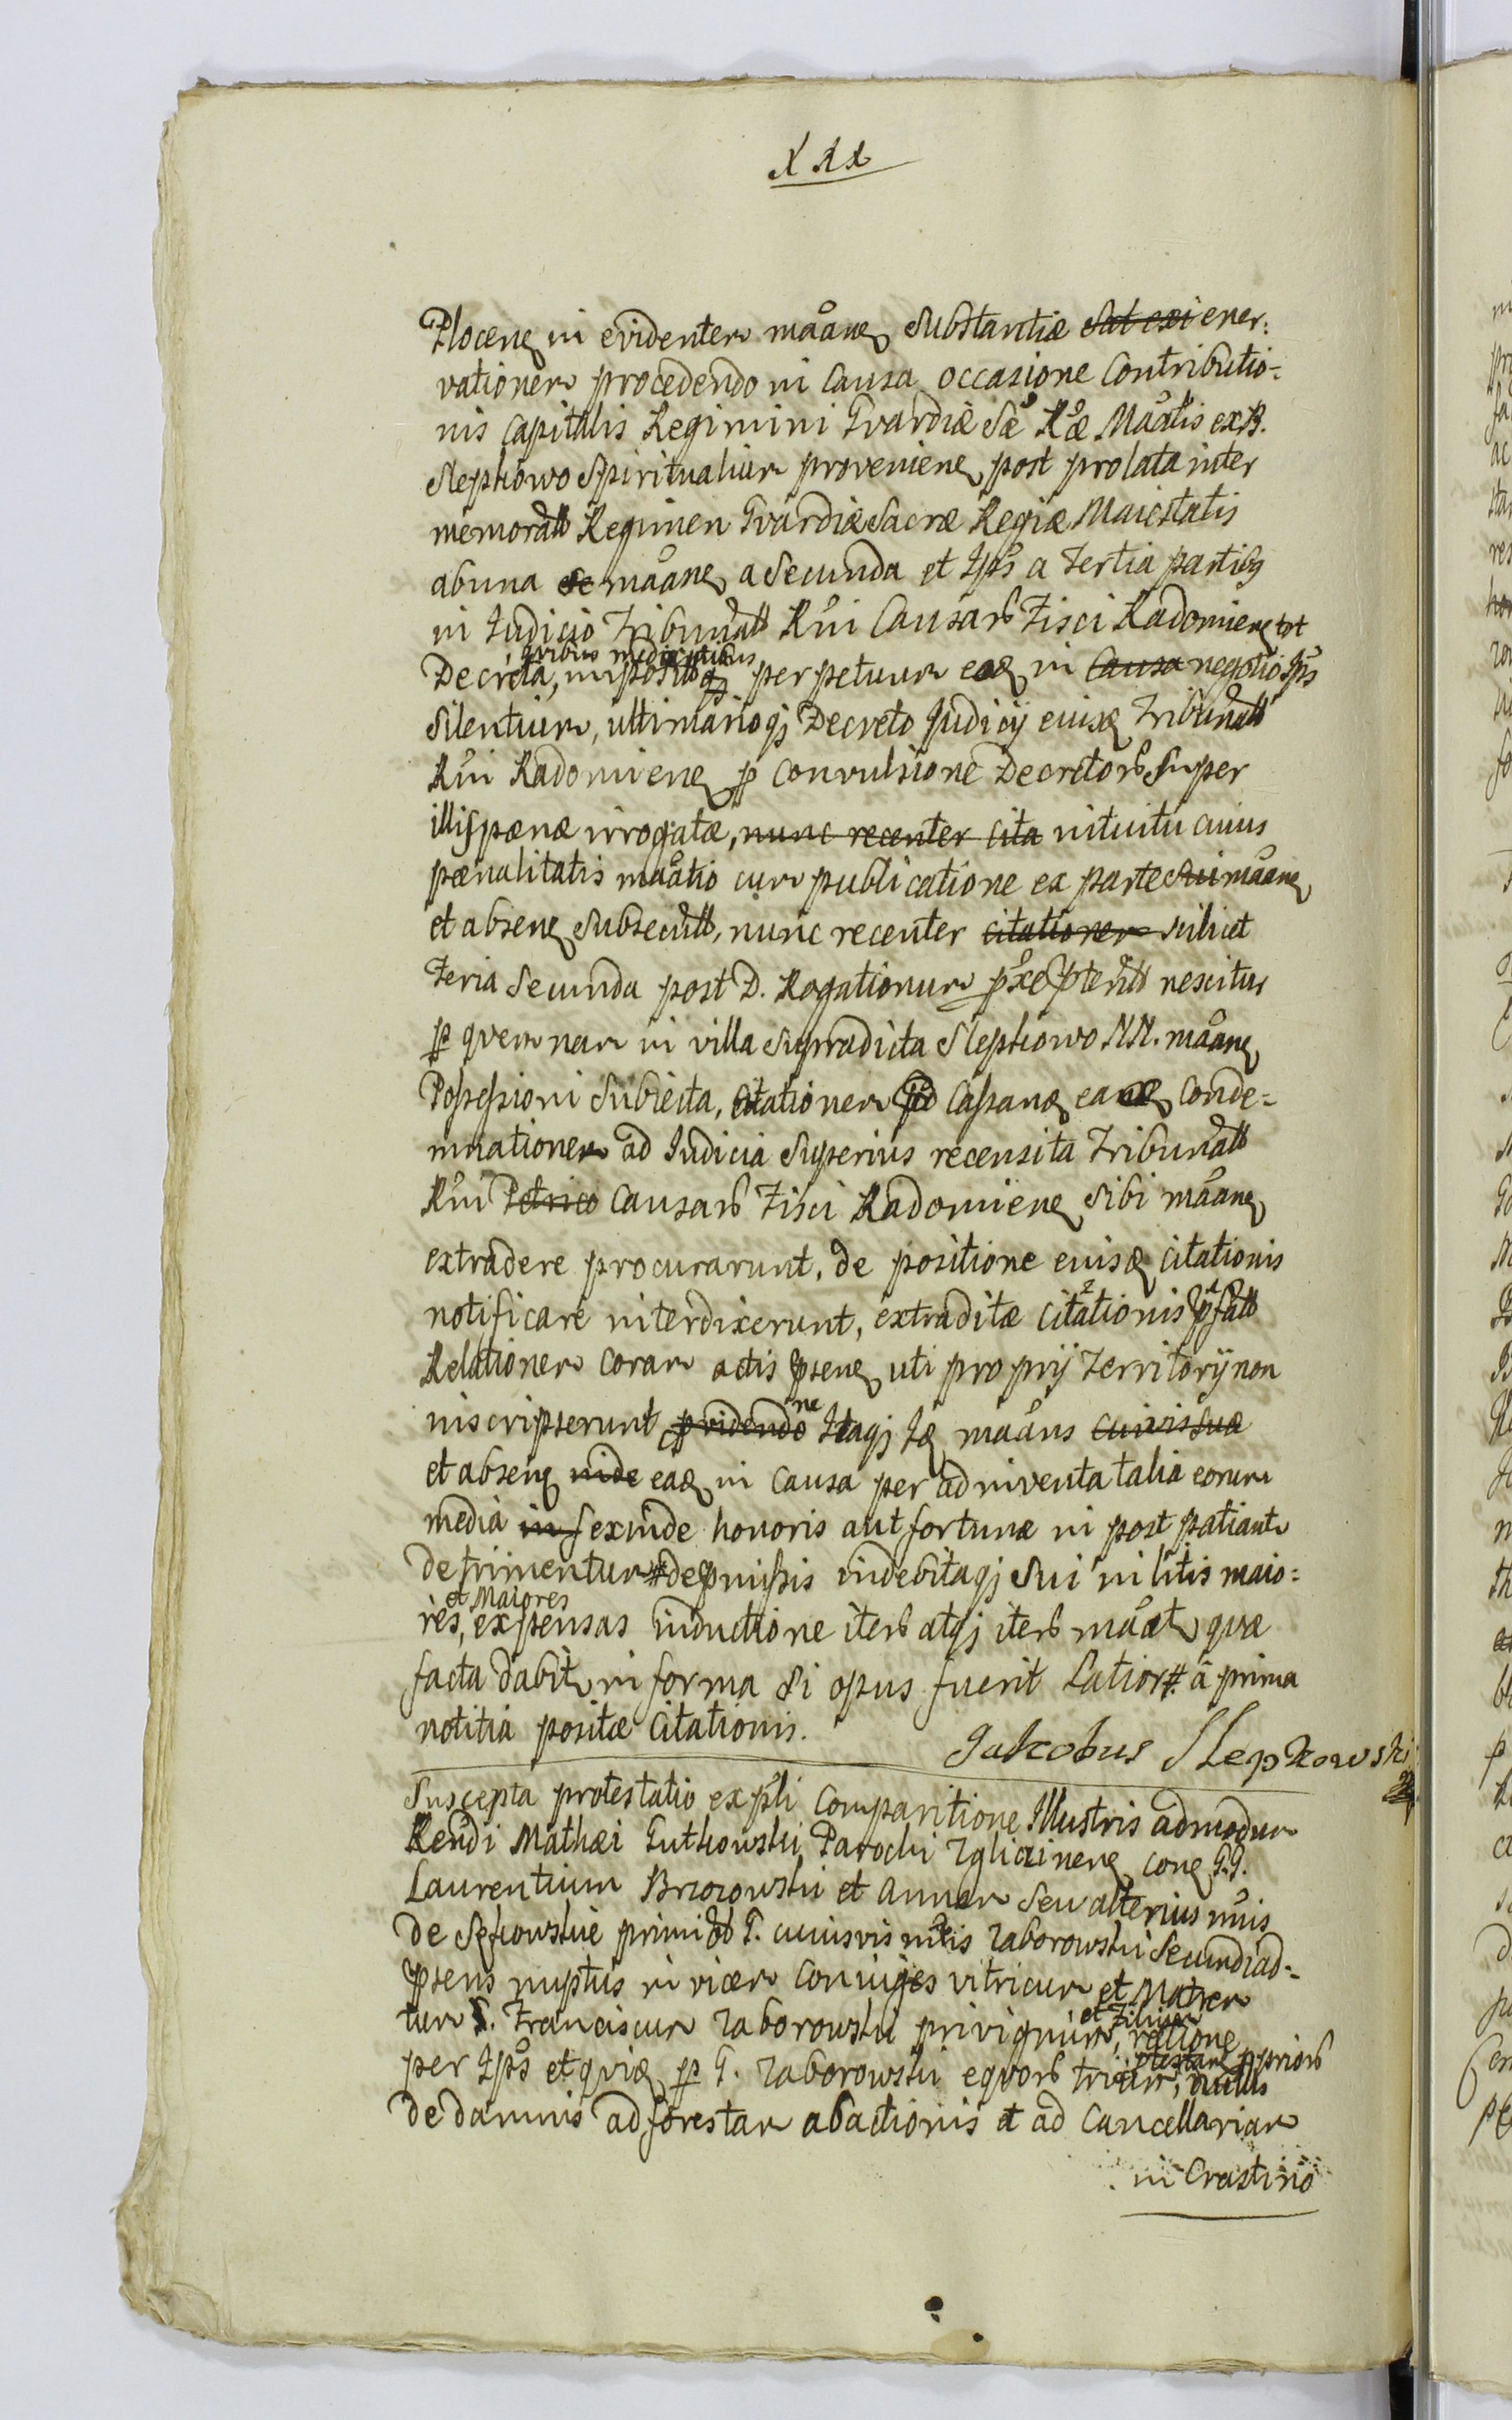 XXX
Plocen in evidentem maane Substantiæ Sat exi ener:
vationem procedendo in Causa occasione Contributio-
nis Capitalis Regimini Gvardiæ Sæ Ræ Mattis ex B.
Slepkowo Spiritualium provenien post prolata inter
memorat Regimen Gvardiæ Sacræ Regiæ Maiestatis
ab una se maane a Secunda et Ips a Tertia partibus
in Judicio Tribunal Rni Causar Fisci Radomien tot
quibus mediantibus
Decreta, imposit perpetuum ead in Causa negotio Ips
Silentium, ultimarioq Decreto Judicij eiusd Tribunal
Rni Radomien p convulsione Decretor Super
illis pœnæ irrogatæ, nunc recenter cita intuitu cuius
pœnalitatis maatio cum publicatione ex parte Sui maane
et absen Subsecut, nunc recenter citationem scilicet
Feria Secunda post D. Rogationum præterit nescitur
p quemnam in villa Supradicta Slepkowo NN. maane
Possessioni Subiecta, Citationem Cassan ean conde-
mnationem ad Judicia Superius recensita Tribunal
Rni Petrico Causar Fisci Radomien Sibi maane
extradere procurarunt, de positione eiusd citationis
notificare interdixerunt, extraditæ citationis pfat
Relationem coram actis psen uti proprij Territorij non
inscripserunt pvidendo ne Itaq Id maans cuivis suæ
et absen inde ead in causa per adinventa talia eorum
media in f exinde honoris aut fortunæ in post patiant
detrimentum # de pmissis indebitaq Sui in litis maio-
et Maiores
res, expensas inductione iter atq iter maat, quæ
facta dabit in forma Si opus fuerit Latior # à prima
notitia positæ Citationis.
Jakobus Slepkowski
Suscepta protestatio ex pli Comparitione Illustris admodum
Rendi Mathæi Gutkowski Parochi Zglicinen con G.G.
Laurentium Brzozowski et Annam Seu alterius nuis
de Sękowskie primi G. cuiusvis ntis Zaborowski Secundi ad-
psens nuptus in vicem Coniuges vitricum et Matrem
et Filium
tum G. Franciscum Zaborowski privignum, ratione
per Ips et quid p G. Zaborowski equor trium, ptestan pprior
de damnis ad forestam abactionis et ad Cancellariam
in Crastino